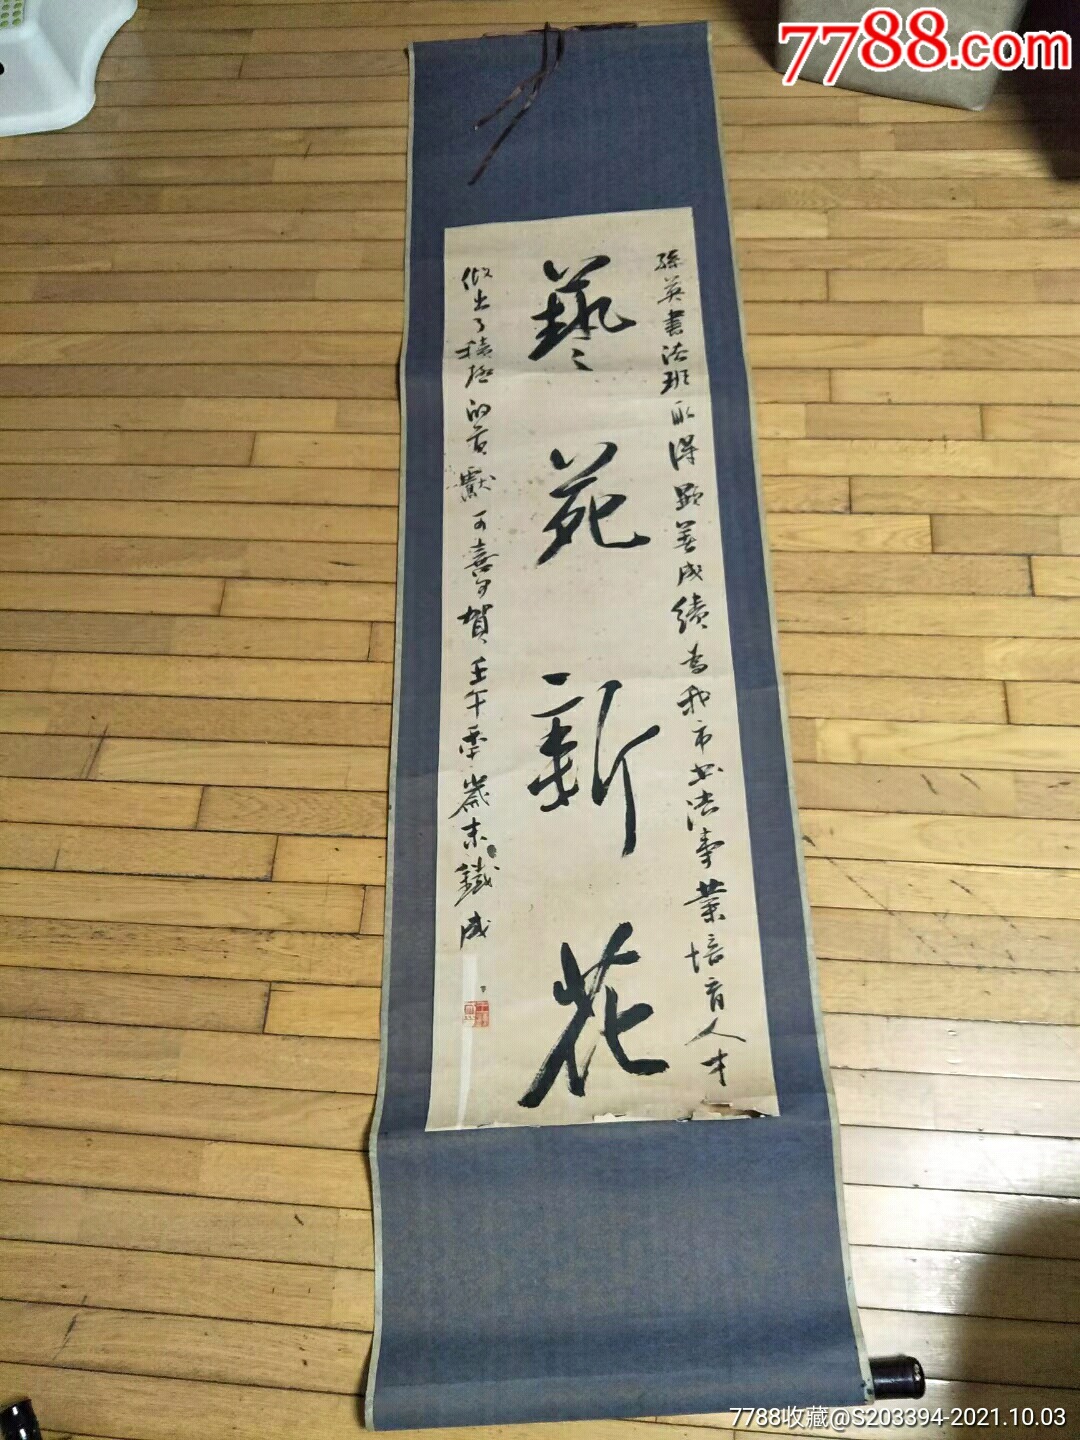 7788.com
孫英書法班取得顯著成績為我市书法事業培育人才
藝苑新花
做出了積極的貢獻可喜可賀壬午季歲末鐵成
7788收藏@S203394-2021.10.03